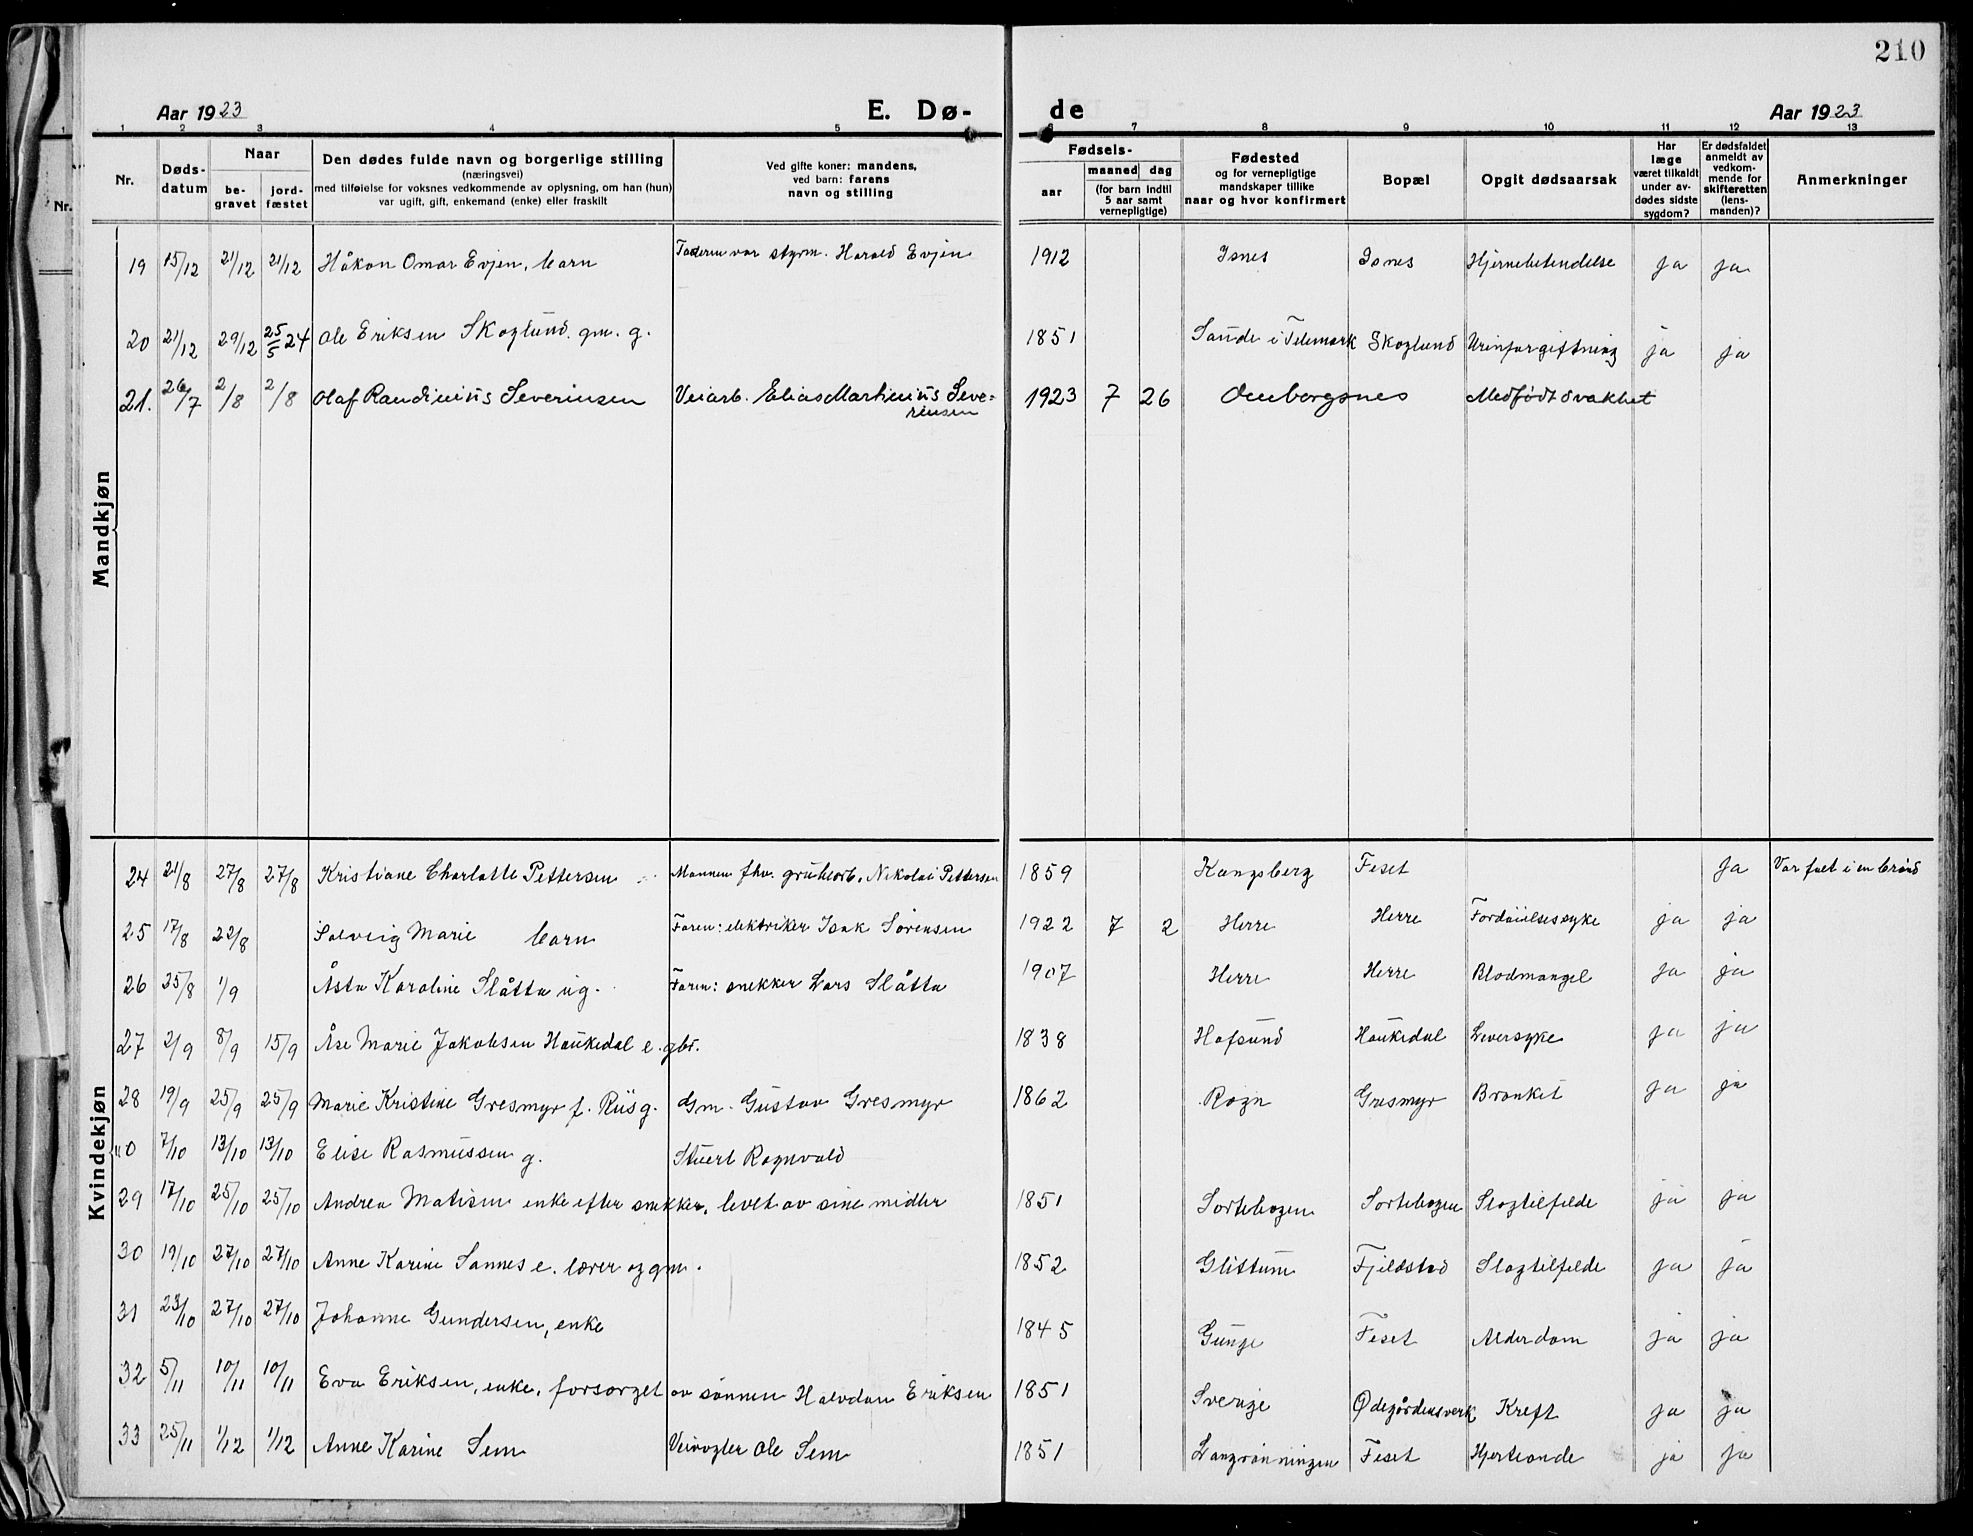 210
Aar 1923 E. Dø- de Aar 1923
1 2 3 4 5 6 7 8 9 10 11 12 13
Nr. Døds-datum Naar be-gravet jord-fæstet Den dødes fulde navn og borgerlige stilling (næringsvei) med tilføielse for voksnes vedkommende av oplysning, om han (hun) var ugift, gift, enkemand (enke) eller fraskilt Ved gifte koner: mandens, ved barn: farens navn og stilling Fødsels- aar maaned dag (for barn indtil 5 aar samt vernepligtige) Fødested og for vernepligtige mandskaper tillike naar og hvor konfirmert Bopæl Opgit dødsaarsak Har læge været tilkaldt under av-dødes sidste sygdom? Er dødsfaldet anmeldt av vedkom-mende for skifteretten (lens-manden)? Anmerkninger
Nr.
Mandkjøn
19 15/12 21/12 21/12 Håkon Omar Evjen, barn Faderen var styrm. Harald Evjen 1912 Isnes Isnes Hjernebetendelse ja ja
20 21/12 29/12 25/5 24 Ole Eriksen Skoglund. gm. g. 1851 Sande i Telemark Skoglund Urinforgiftning ja ja
21. 26/7 2/8 2/8 Olaf Randinius Severinsen Veiarb. Elias Martinius Seve=
rinsen 1923 7 26 Omborgsnes Medfødt svakhet
Kvindekjøn
24 21/8 27/8 27/8 Kristiane Charlotte Pettersen Mannen fhv. grubearb. Nikolai Pettersen 1859 Kongsberg Feset ja Var falt i en brønd
25 17/8 22/8 Solveig Marie barn Faren: elektriker Isak Sørensen 1922 7 2 Herre Herre Fordøielsessyke ja ja
26 25/8 1/9 Åsta Karoline Slåtta ug. Faren: snekker Lars Slåtta 1907 Herre Herre Blodmangel ja ja
27 2/9 8/9 15/9 Åse Marie Jakobsen Haukedal e. gbr. 1838 Hafsund Haukedal Leversyke ja ja
28 19/9 25/9 25/9 Marie Kristine Gresmyr f. Riis g. Gm. Gustav Gresmyr 1862 Rogn Gresmyr Bronket ja ja
"0 7/10 13/10 13/10 Elise Rasmussen g. Stuert Rognvald
29 17/10 25/10 25/10 Andrea Matisen enke efter snekker, levet av sine midler 1851 Sortebogen Sortebogen Slagtilfelde ja ja
30 19/10 27/10 27/10 Anne Karine Sannes e. lærer og gm. 1852 Glittum Fjeldstad Slagtilfelde ja ja
31 23/10 27/10 27/10 Johanne Gundersen, enke 1845 Gunge Feset Alderdom ja ja
32 5/11 10/11 10/11 Eva Eriksen, enke, forsørget av sønnen Halvdan Eriksen 1851 Sverige Ødegårdensverk Kreft ja ja
33 25/11 1/12 1/12 Anne Karine Sem Veivogter Ole Sem 1851 Langrønningen Feset Hjerteonde ja ja